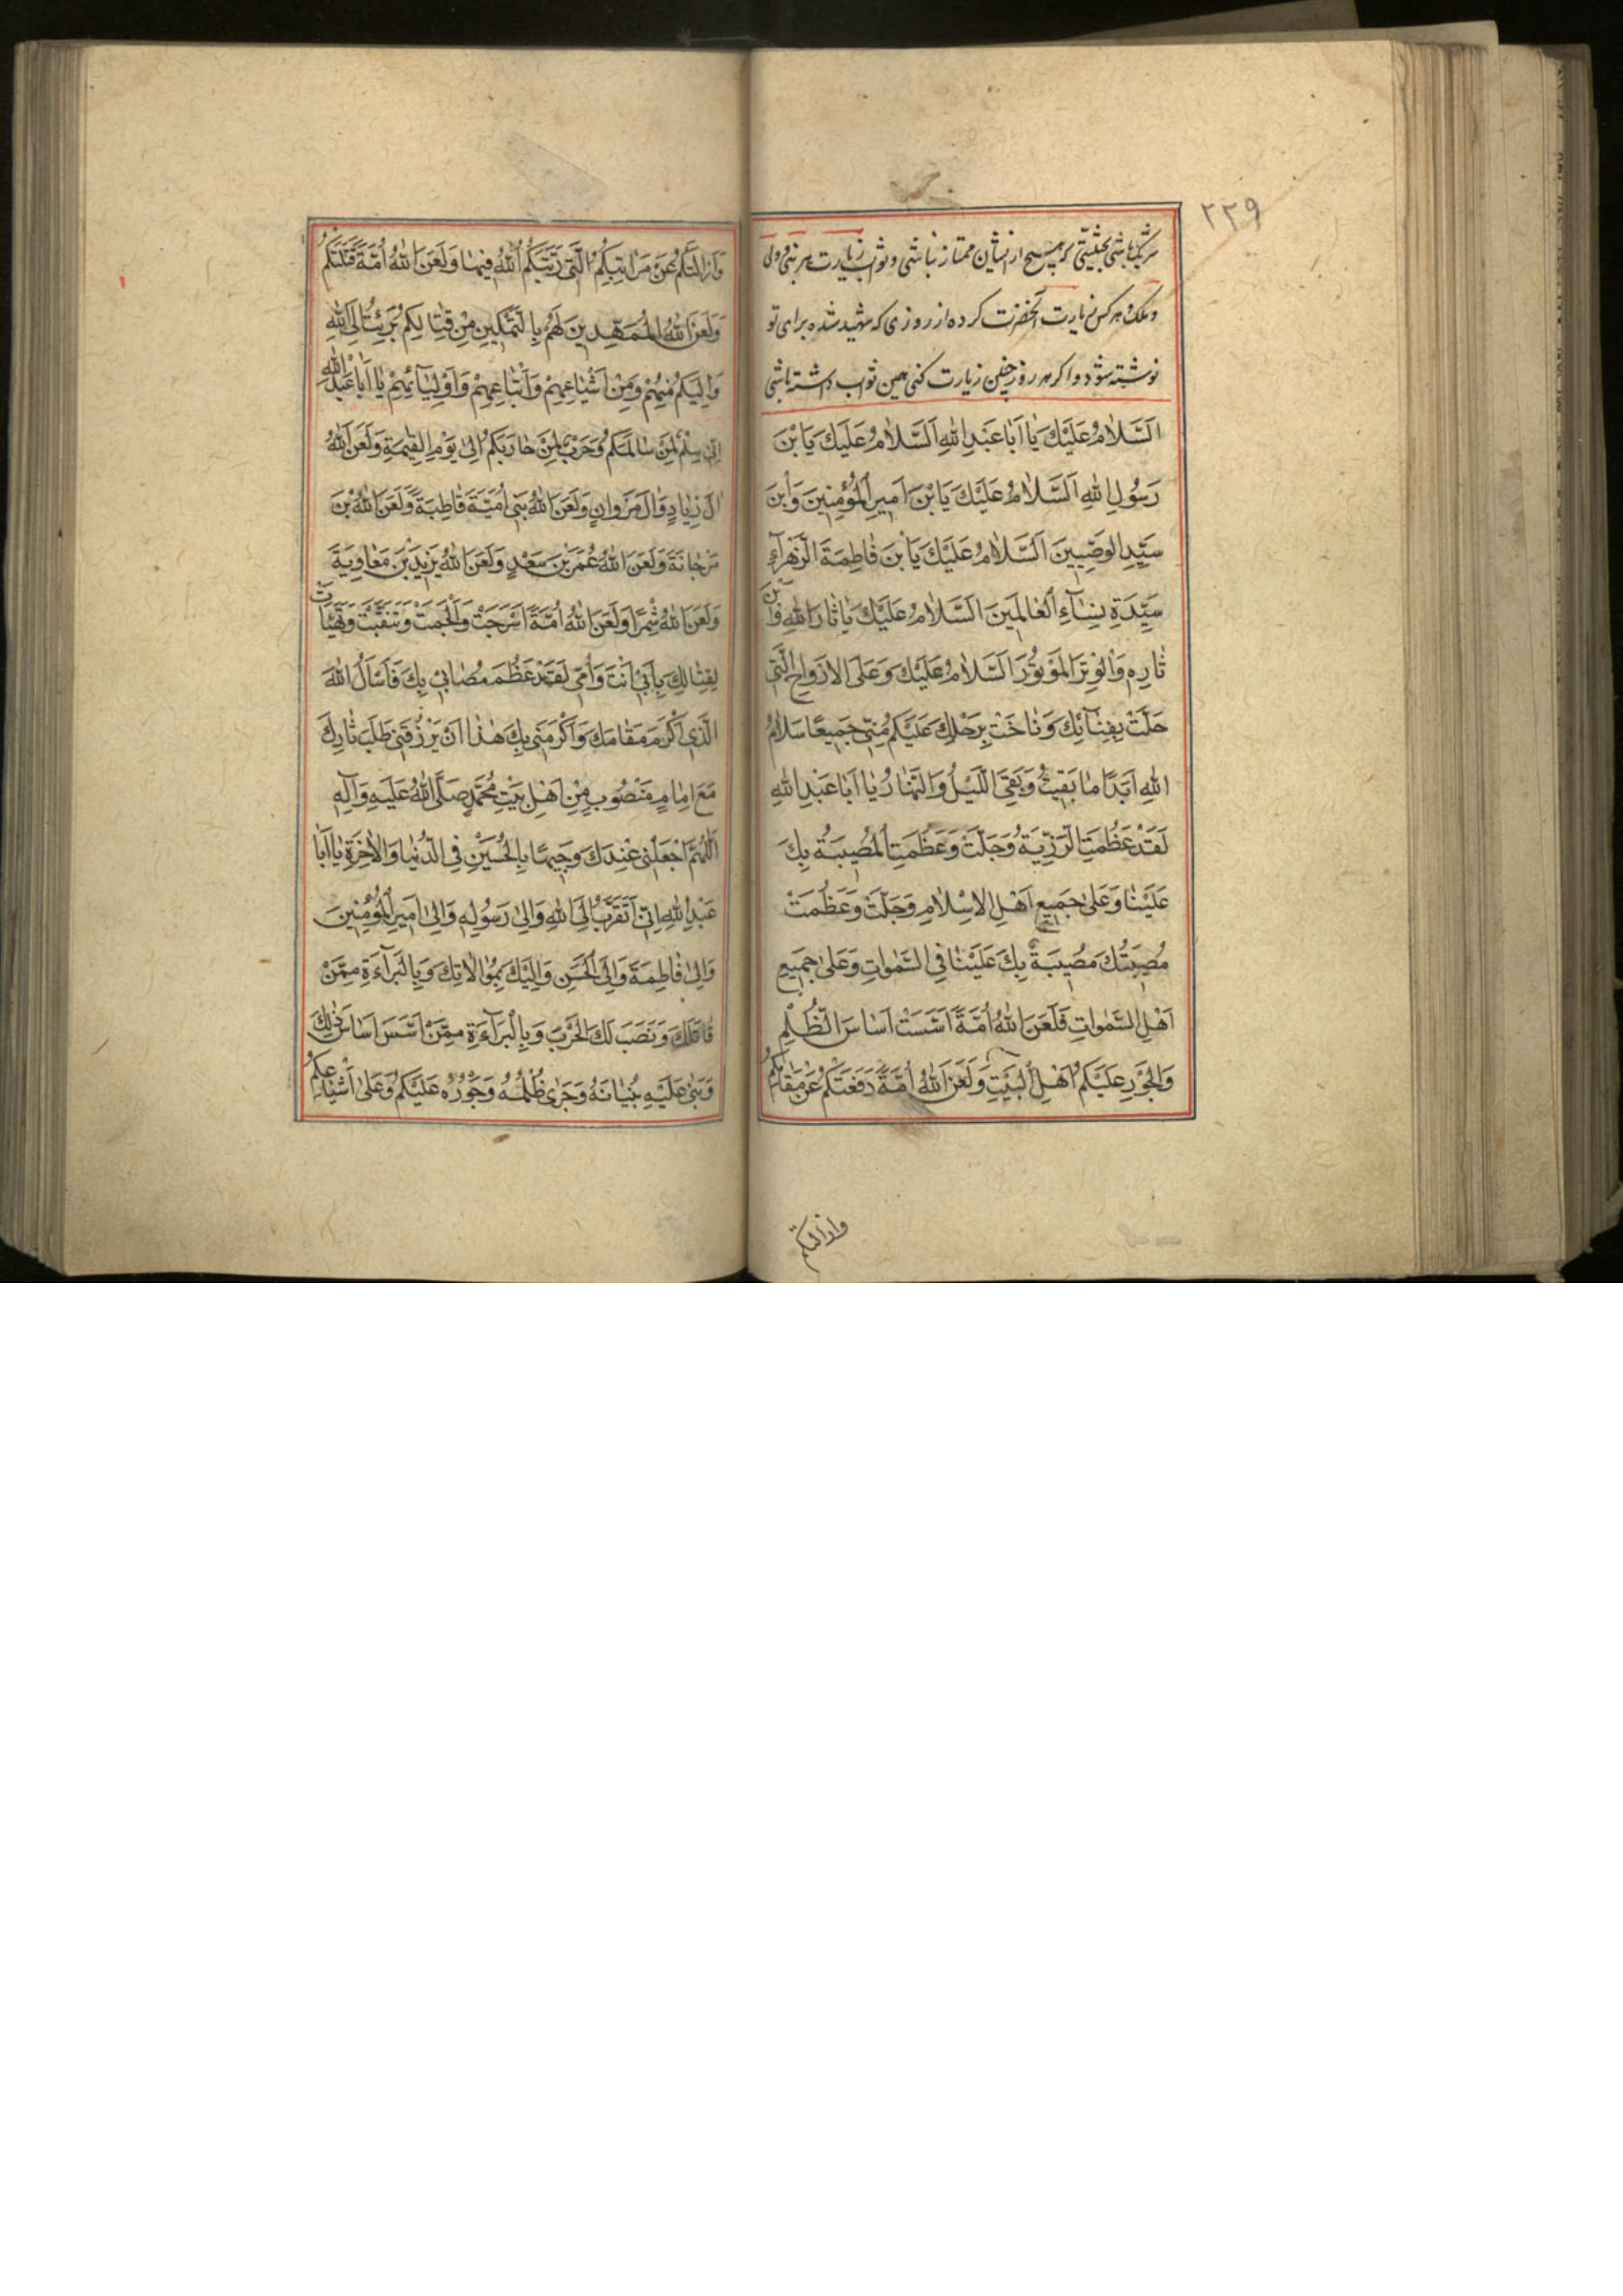 ۲۲۹
شریک باشی بحیثیتی که بهیچ از ایشان ممتاز نباشی و ثواب زیارت هر نبی و ولی
و ملک و هر کس زیارت آنحضرت کرده از روزی که شهید شده برای تو
نوشته شود و اگر هر روز چنین زیارت کنی همین ثواب داشته باشی
اَلسَّلَامُ عَلَيْكَ يَا اَبَا عَبْدِ اللهِ اَلسَّلَامُ عَلَيْكَ يَا بْنَ
رَسُولِ اللهِ اَلسَّلَامُ عَلَيْكَ يَا بْنَ اَمِيرِ الْمُؤْمِنِينَ وَابْنَ
سَيِّدِ الْوَصِيِّينَ اَلسَّلَامُ عَلَيْكَ يَا بْنَ فَاطِمَةَ الزَّهْرَآءِ
سَيِّدَةِ نِسَآءِ الْعَالَمِينَ اَلسَّلَامُ عَلَيْكَ يَا ثَارَ اللهِ وَابْنَ
ثَارِهِ وَالْوِتْرَ الْمَوْتُورَ اَلسَّلَامُ عَلَيْكَ وَعَلَى الْاَرْوَاحِ الَّتِي
حَلَّتْ بِفِنَآئِكَ وَنَاخَتْ بِرَحْلِكَ عَلَيْكُمْ مِنِّي جَمِيعًا سَلَامُ
اللهِ اَبَدًا مَا بَقِيتُ وَبَقِيَ اللَّيْلُ وَالنَّهَارُ يَا اَبَا عَبْدِ اللهِ
لَقَدْ عَظُمَتِ الرَّزِيَّةُ وَجَلَّتْ وَعَظُمَتِ الْمُصِيبَةُ بِكَ
عَلَيْنَا وَعَلَى جَمِيعِ اَهْلِ الْاِسْلَامِ وَجَلَّتْ وَعَظُمَتْ
مُصِيبَتُكَ مُصِيبَةٌ بِكَ عَلَيْنَا فِي السَّمٰوَاتِ وَعَلَى جَمِيعِ
اَهْلِ السَّمٰوَاتِ فَلَعَنَ اللهُ اُمَّةً اَسَّسَتْ اَسَاسَ الظُّلْمِ
وَالْجَوْرِ عَلَيْكُمْ اَهْلَ الْبَيْتِ وَلَعَنَ اللهُ اُمَّةً دَفَعَتْكُمْ عَنْ مَقَامِكُمْ
وازالتكم
وَاَزَالَتْكُمْ عَنْ مَرَاتِبِكُمُ الَّتِي رَتَّبَكُمُ اللهُ فِيهَا وَلَعَنَ اللهُ اُمَّةً قَتَلَتْكُمْ
وَلَعَنَ اللهُ الْمُمَهِّدِينَ لَهُمْ بِالتَّمْكِينِ مِنْ قِتَالِكُمْ بَرِئْتُ اِلَى اللهِ
وَاِلَيْكُمْ مِنْهُمْ وَمِنْ اَشْيَاعِهِمْ وَاَتْبَاعِهِمْ وَاَوْلِيَآئِهِمْ يَا اَبَا عَبْدِ اللهِ
اِنِّي سِلْمٌ لِمَنْ سَالَمَكُمْ وَحَرْبٌ لِمَنْ حَارَبَكُمْ اِلَى يَوْمِ الْقِيٰمَةِ وَلَعَنَ اللهُ
اٰلَ زِيَادٍ وَاٰلَ مَرْوَانٍ وَلَعَنَ اللهُ بَنِي اُمَيَّةَ قَاطِبَةً وَلَعَنَ اللهُ بْنَ
مَرْجَانَةَ وَلَعَنَ اللهُ عُمَرَ بْنَ سَعْدٍ وَلَعَنَ اللهُ يَزِيدَ بْنَ مَعَاوِيَةَ
وَلَعَنَ اللهُ شِمْرًا وَلَعَنَ اللهُ اُمَّةً اَسْرَجَتْ وَاَلْجَمَتْ وَتَنَقَّبَتْ وَتَهَيَّاَتْ
لِقِتَالِكَ بِاَبِي اَنْتَ وَاُمِّي لَقَدْ عَظُمَ مُصَابِي بِكَ فَاَسْاَلُ اللهَ
الَّذِي اَكْرَمَ مَقَامَكَ وَاَكْرَمَنِي بِكَ هٰذَا اَنْ يَرْزُقَنِي طَلَبَ ثَارِكَ
مَعَ اِمَامٍ مَنْصُوبٍ مِنْ اَهْلِ بَيْتِ مُحَمَّدٍ صَلَّى اللهُ عَلَيْهِ وَآلِهِ
اَللّٰهُمَّ اجْعَلْنِي عِنْدَكَ وَجِيهًا بِالْحُسَيْنِ فِي الدُّنْيَا وَالْاٰخِرَةِ يَا اَبَا
عَبْدِ اللهِ اِنِّي اَتَقَرَّبُ اِلَى اللهِ وَاِلَى رَسُولِهِ وَاِلَى اَمِيرِ الْمُؤْمِنِينَ
وَاِلَى فَاطِمَةَ وَاِلَى الْحَسَنِ وَاِلَيْكَ بِمُوَالَاتِكَ وَبِالْبَرَآءَةِ مِمَّنْ
قَاتَلَكَ وَنَصَبَ لَكَ الْحَرْبَ وَبِالْبَرَآءَةِ مِمَّنْ اَسَّسَ اَسَاسَ ذٰلِكَ
وَبَنَى عَلَيْهِ بُنْيَانَهُ وَجَرَى ظُلْمُهُ وَجَوْرُهُ عَلَيْكُمْ وَعَلَى اَشْيَاعِكُمْ